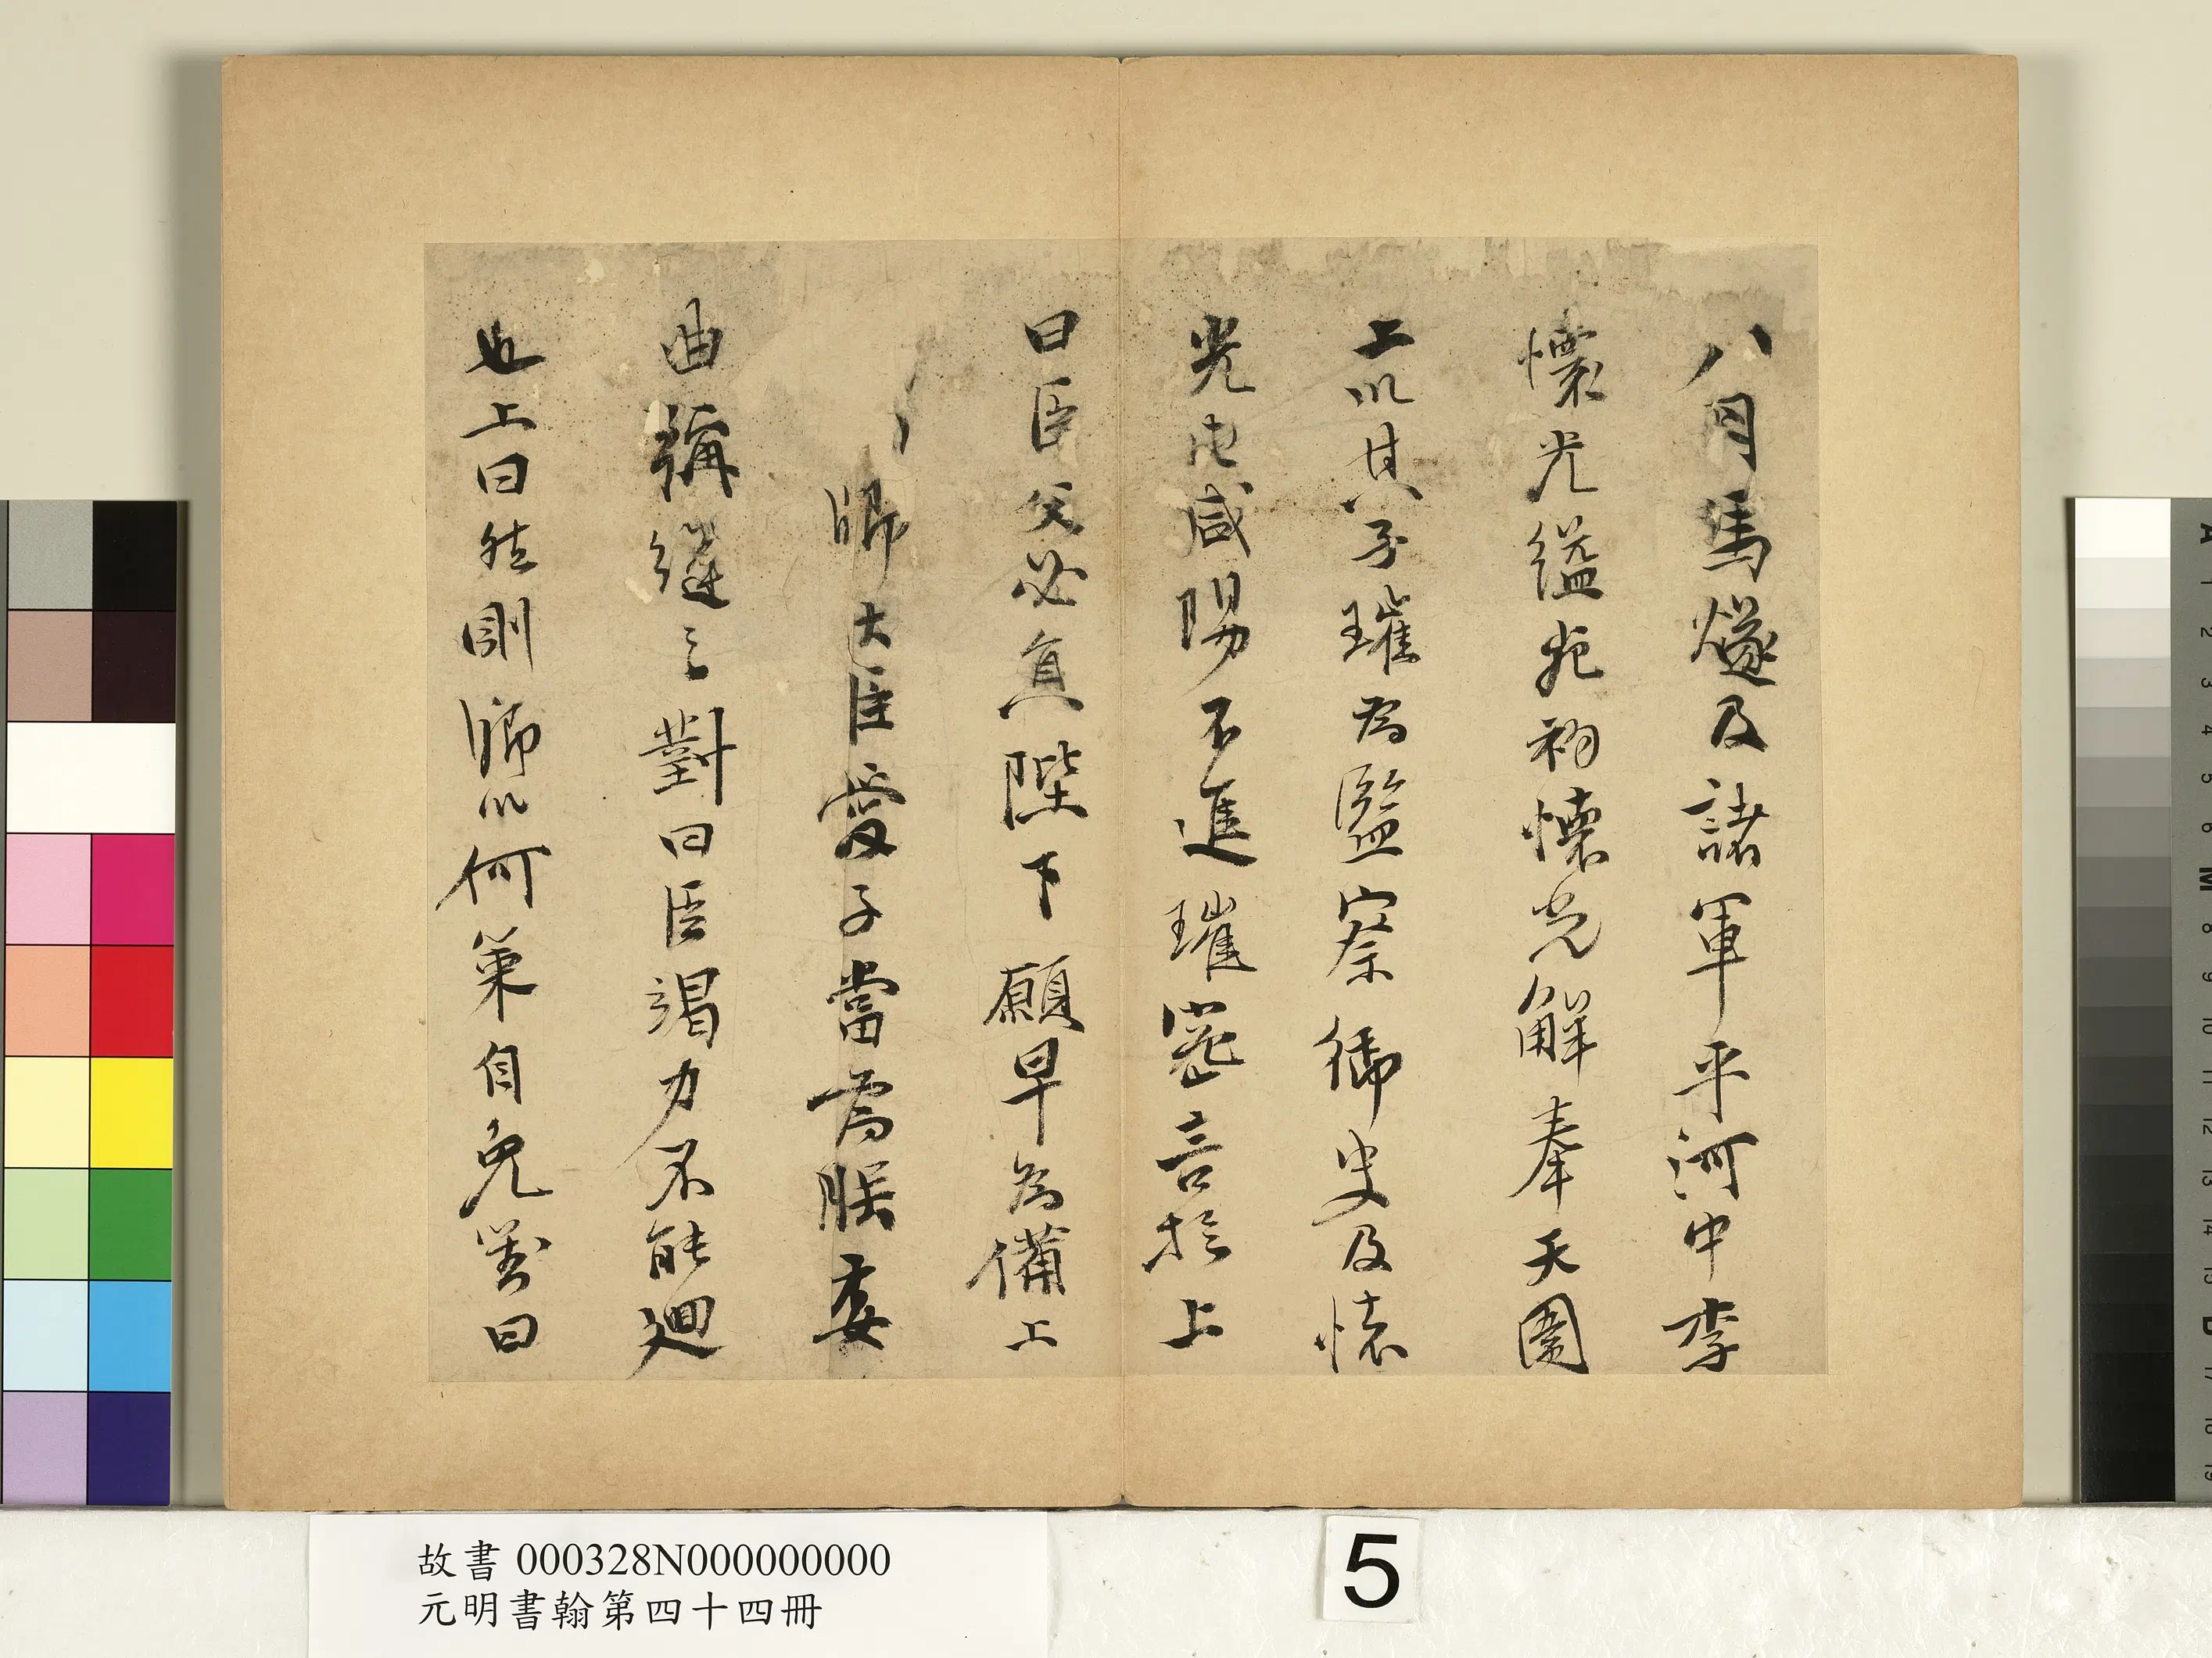 八月馬燧及諸軍平河中李
懷光縊死初懷光解奉天圍
上以其子璀為監察御史及懷
光屯咸陽不進璀密言於上
曰臣父必負陛下願早為備上
卿大臣愛子當為朕委
曲彌縫之對曰臣竭力不能迴
也上曰然則卿以何策自免對曰
故書 000328N000000000
元明書翰第四十四冊
5